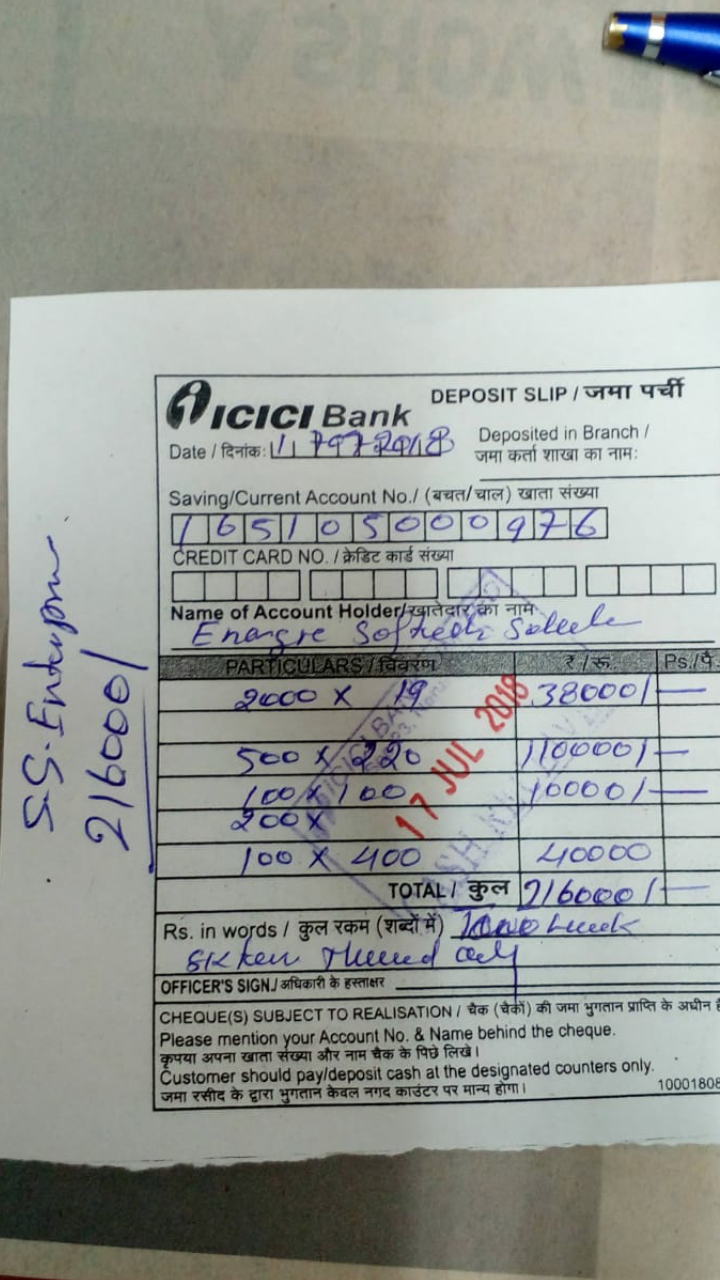 ICICI Bank
DEPOSIT SLIP / जमा पर्ची
Date / दिनांक: 17 2018
Deposited in Branch /
जमा कर्ता शाखा का नाम:
Saving/Current Account No./ (बचत/चाल) खाता संख्या
165105000976
CREDIT CARD NO. / क्रेडिट कार्ड संख्या
Name of Account Holder/खातेदार का नाम
PARTICULARS / विवरण ₹ / रू. Ps./पै.
2000 X 19 38000/—
500 X 220 110000/—
100 X 100 10000/—
200X
17 JUL 2018
100 X 400 40000
TOTAL / कुल 216000/—
Rs. in words / कुल रकम (शब्दों में)
only
OFFICER'S SIGN./ अधिकारी के हस्ताक्षर
CHEQUE(S) SUBJECT TO REALISATION / चैक (चैकों) की जमा भुगतान प्राप्ति के अधीन
Please mention your Account No. & Name behind the cheque.
कृपया अपना खाता संख्या और नाम चैक के पिछे लिखे।
Customer should pay/deposit cash at the designated counters only.
जमा रसीद के द्वारा भुगतान केवल नगद काउंटर पर मान्य होगा।
10001808
S.S. Enterprise
216000/